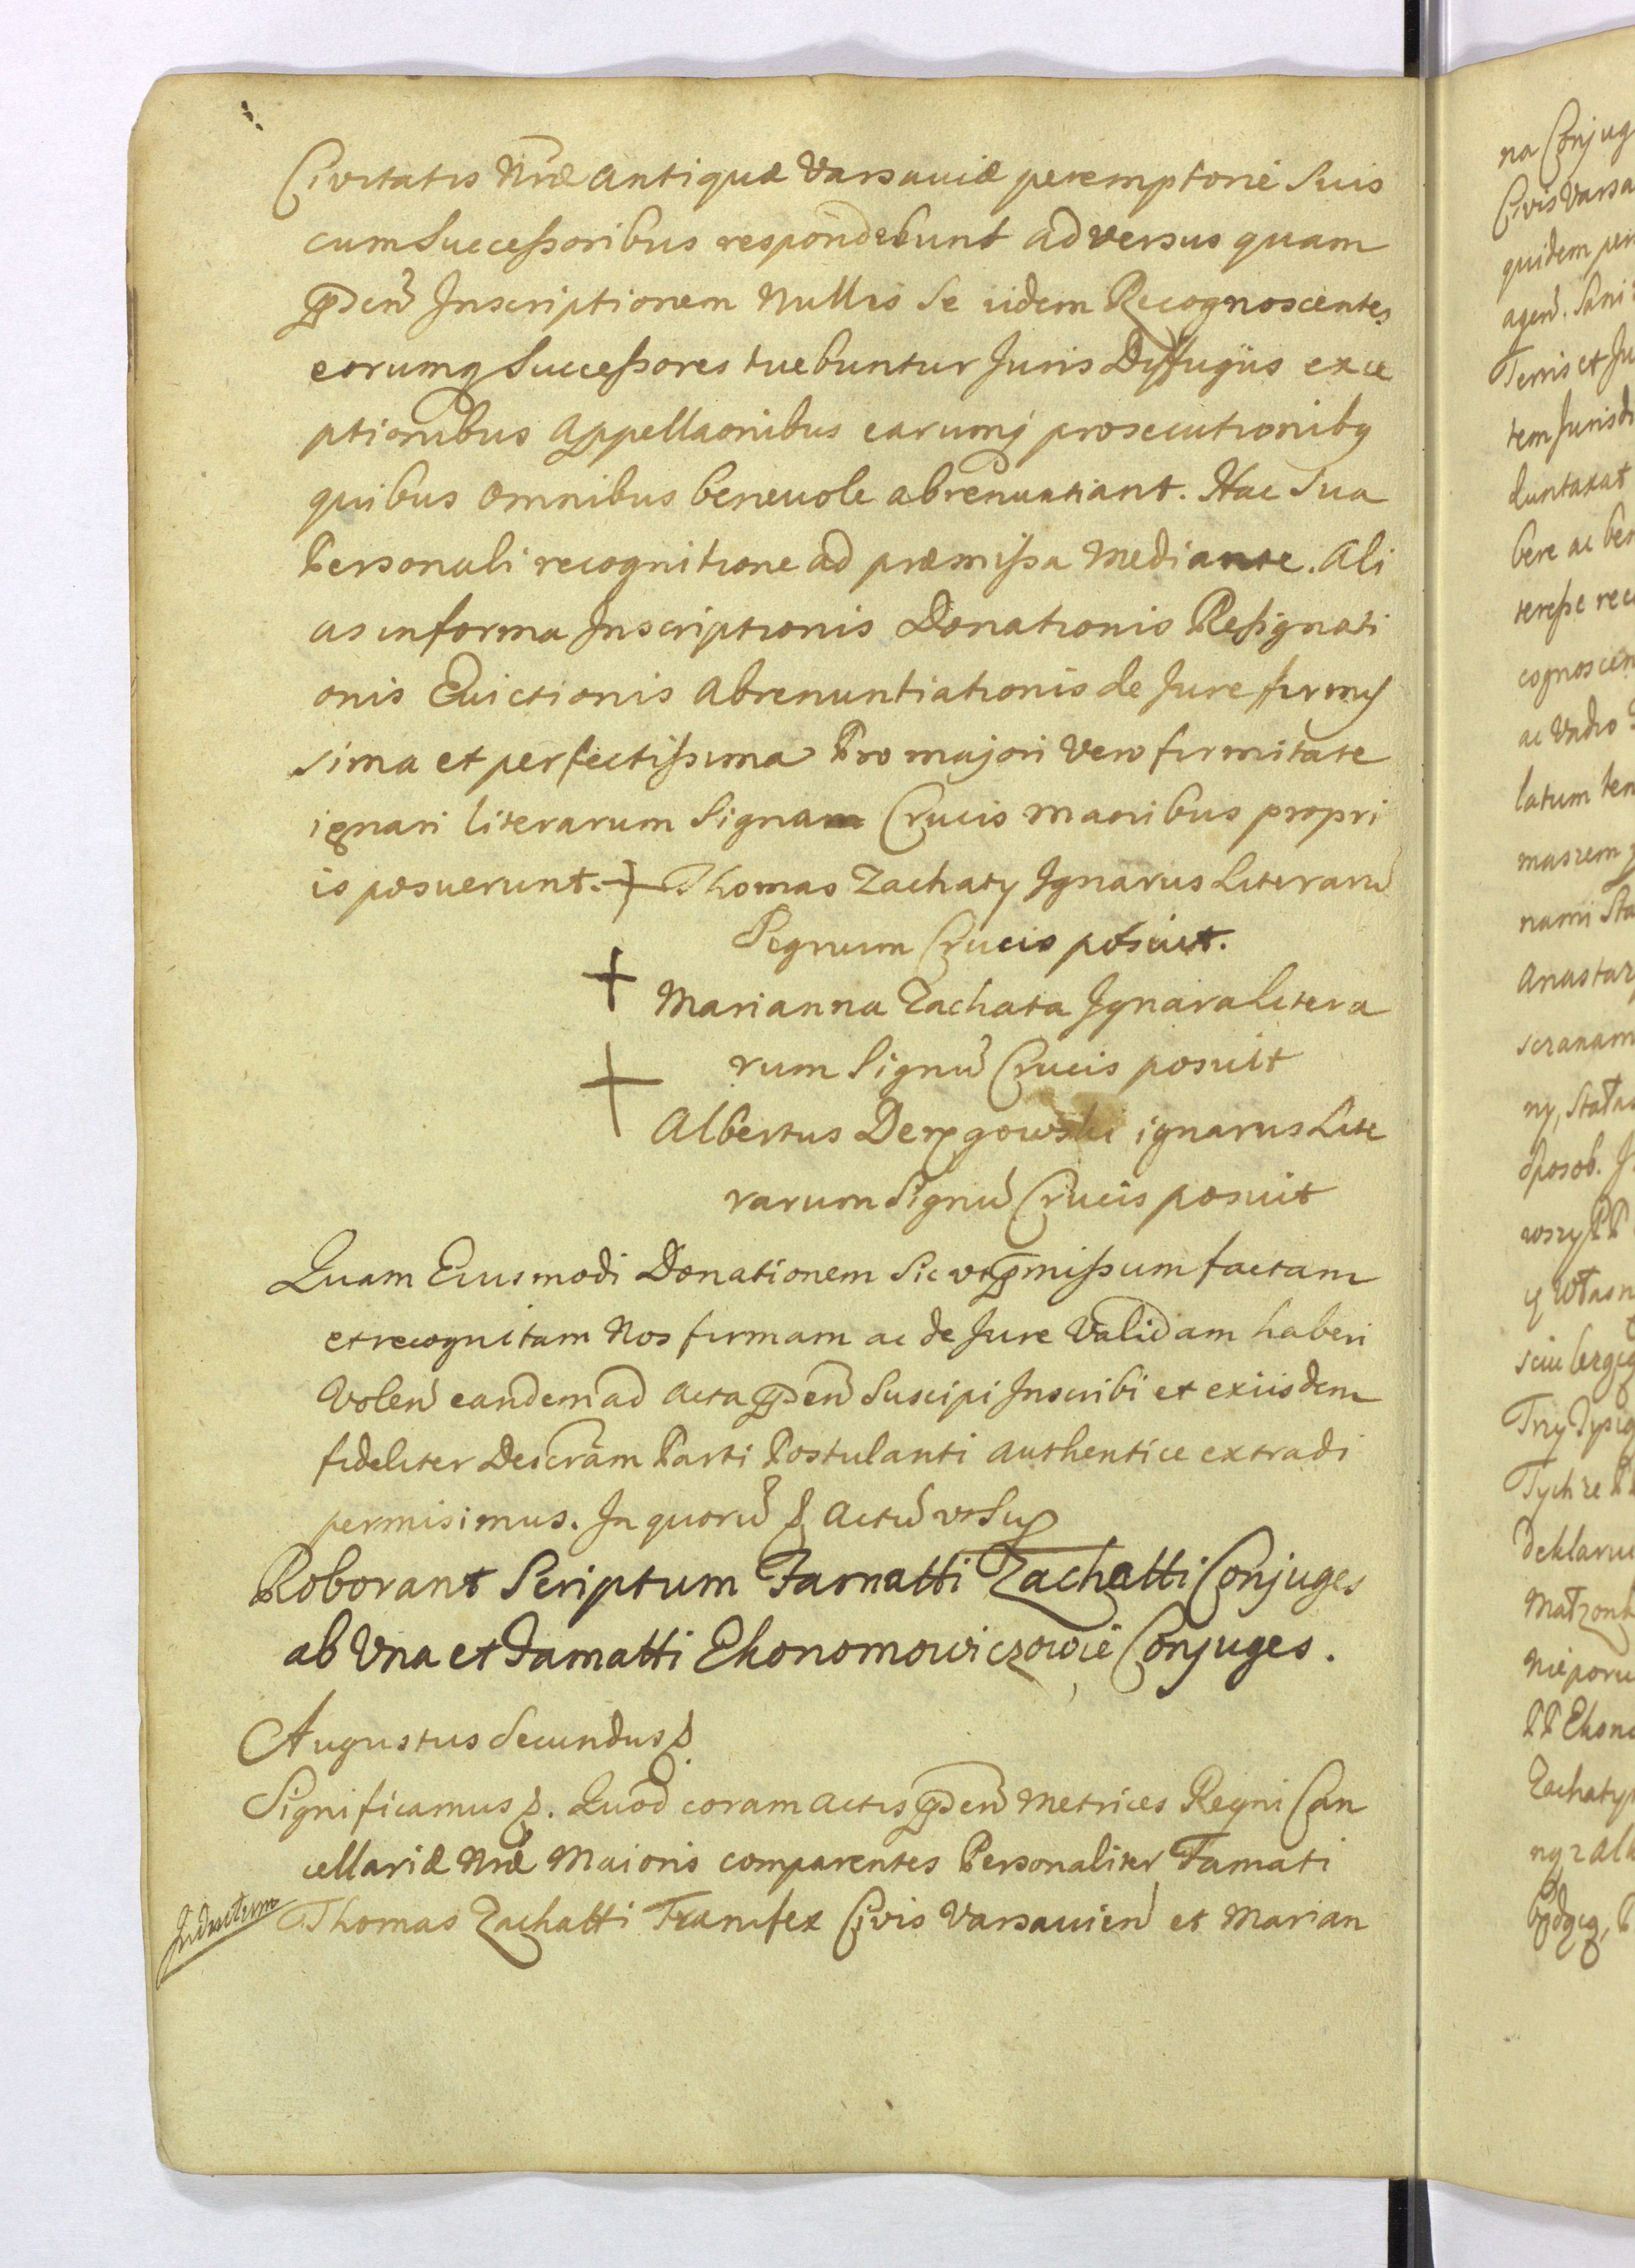 Civitatis Nrae Antiquae Varsaviae peremptorie Suis
cum Successoribus respondebunt adversus quam
pnden Inscriptionem Nullis Se iidem Recognoscentes
eorumq Successores tuebuntur Juris Diffugiis exce
ptionibus Appellaonibus earumq prosecutionibq
quibus omnibus benevole abrenuntiant. Hac Sua
Personali recognitione ad praemissa Mediante. Ali
as in forma Inscriptionis Donationis Resignati
onis Evictionis Abrenuntiationis de Jure firmis
sima et perfectissima Pro majori Vero firmitate
ignari literarum Signam Crucis manibus propri
is posuerunt. + Thomas Zachaty Ignarus Literarũ
Signum Crucis posuit.
+ Marianna Zachata Ignara Litera
rum Signũ Crucis posuit
+ Albertus gowski ignarus Lite
rarum Signũ Crucis posuit
Quam Eiusmodi Donationem Sic ut pmissum factam
et recognitam Nos firmam ac de Jure Validam haberi
Volen eandem ad Acta pnden Suscipi Inscribi et ex iisdem
fideliter Descram Parti Postulanti Authentice extradi
permisimus. In quorũ Actũ ut Sup
Roborant Scriptum Famatti Zachatti Conjuges
ab Una et Famatti Ekonomowiczowie Conjuges.
Augustus Secundus
Significamus. Quod coram Actis pnden Metrices Regni Can
cellariae Nrae Maioris comparentes Personaliter Famati
Inductum Thomas Zachatti Civis Varsavien et Marian
na Conjug
Civis Varsa
quidem per
agen. Sani
Terris et Ju
tem Jurisdi
duntaxat
bere ac ben
teresse rec
cognoscen
ac Vadio
latum ten
nami Sta
Anastaz
ny, Stata
sposob.
y Wtasn
Tych ze
deklaruie
Matzonk
nieporu
PP Ekono
Zachaty